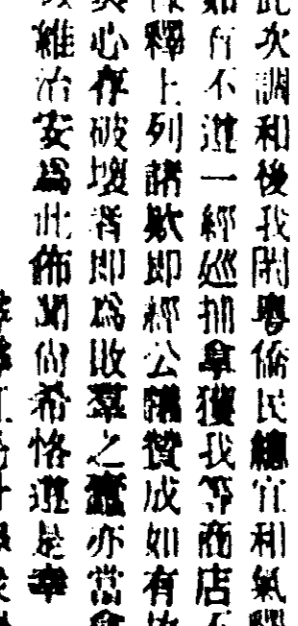 此次調和後我閩粵僑民總宜和氣
如有不遵一經巡捕拿獲我等商店不
釋上列諸款即經公議贊成如有
心存破壞者即為敗羣之蠹亦當
維治安爲此佈聞尚希恪遵是幸